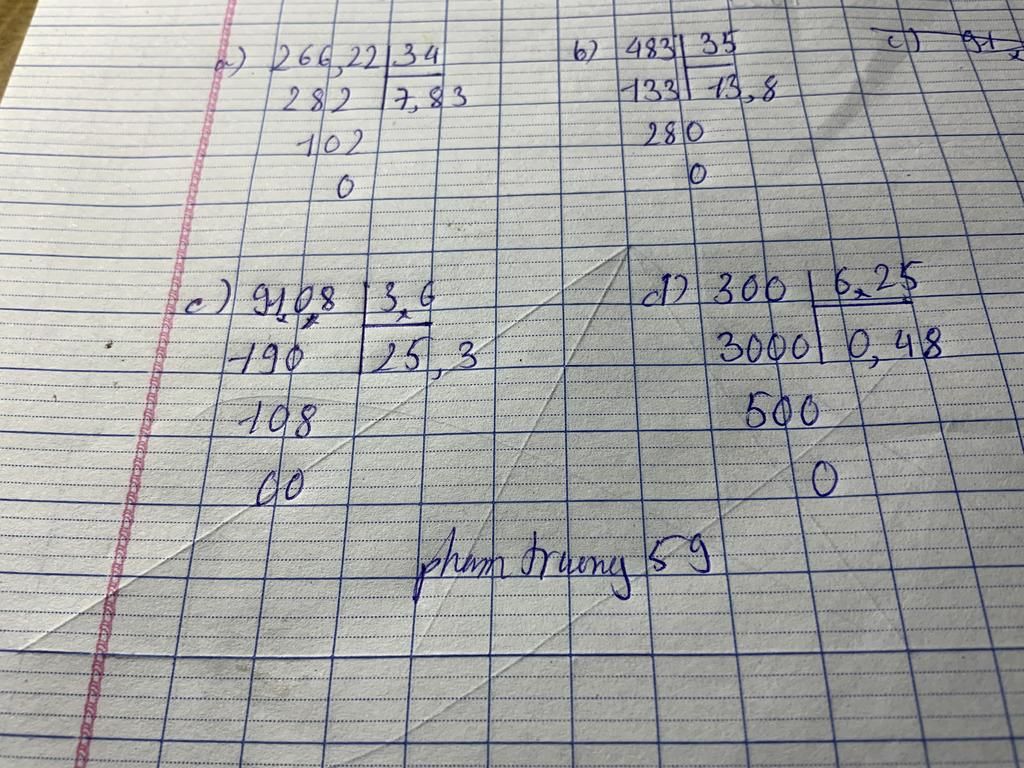 a) 266,22 34
282 7,83
102
0
b) 483 35
133 13,8
280
0
c) 91
c) 91,0,8 3,6
190 25,3
108
00
d) 300 6,25
3000 0,48
500
0
pham truong 59